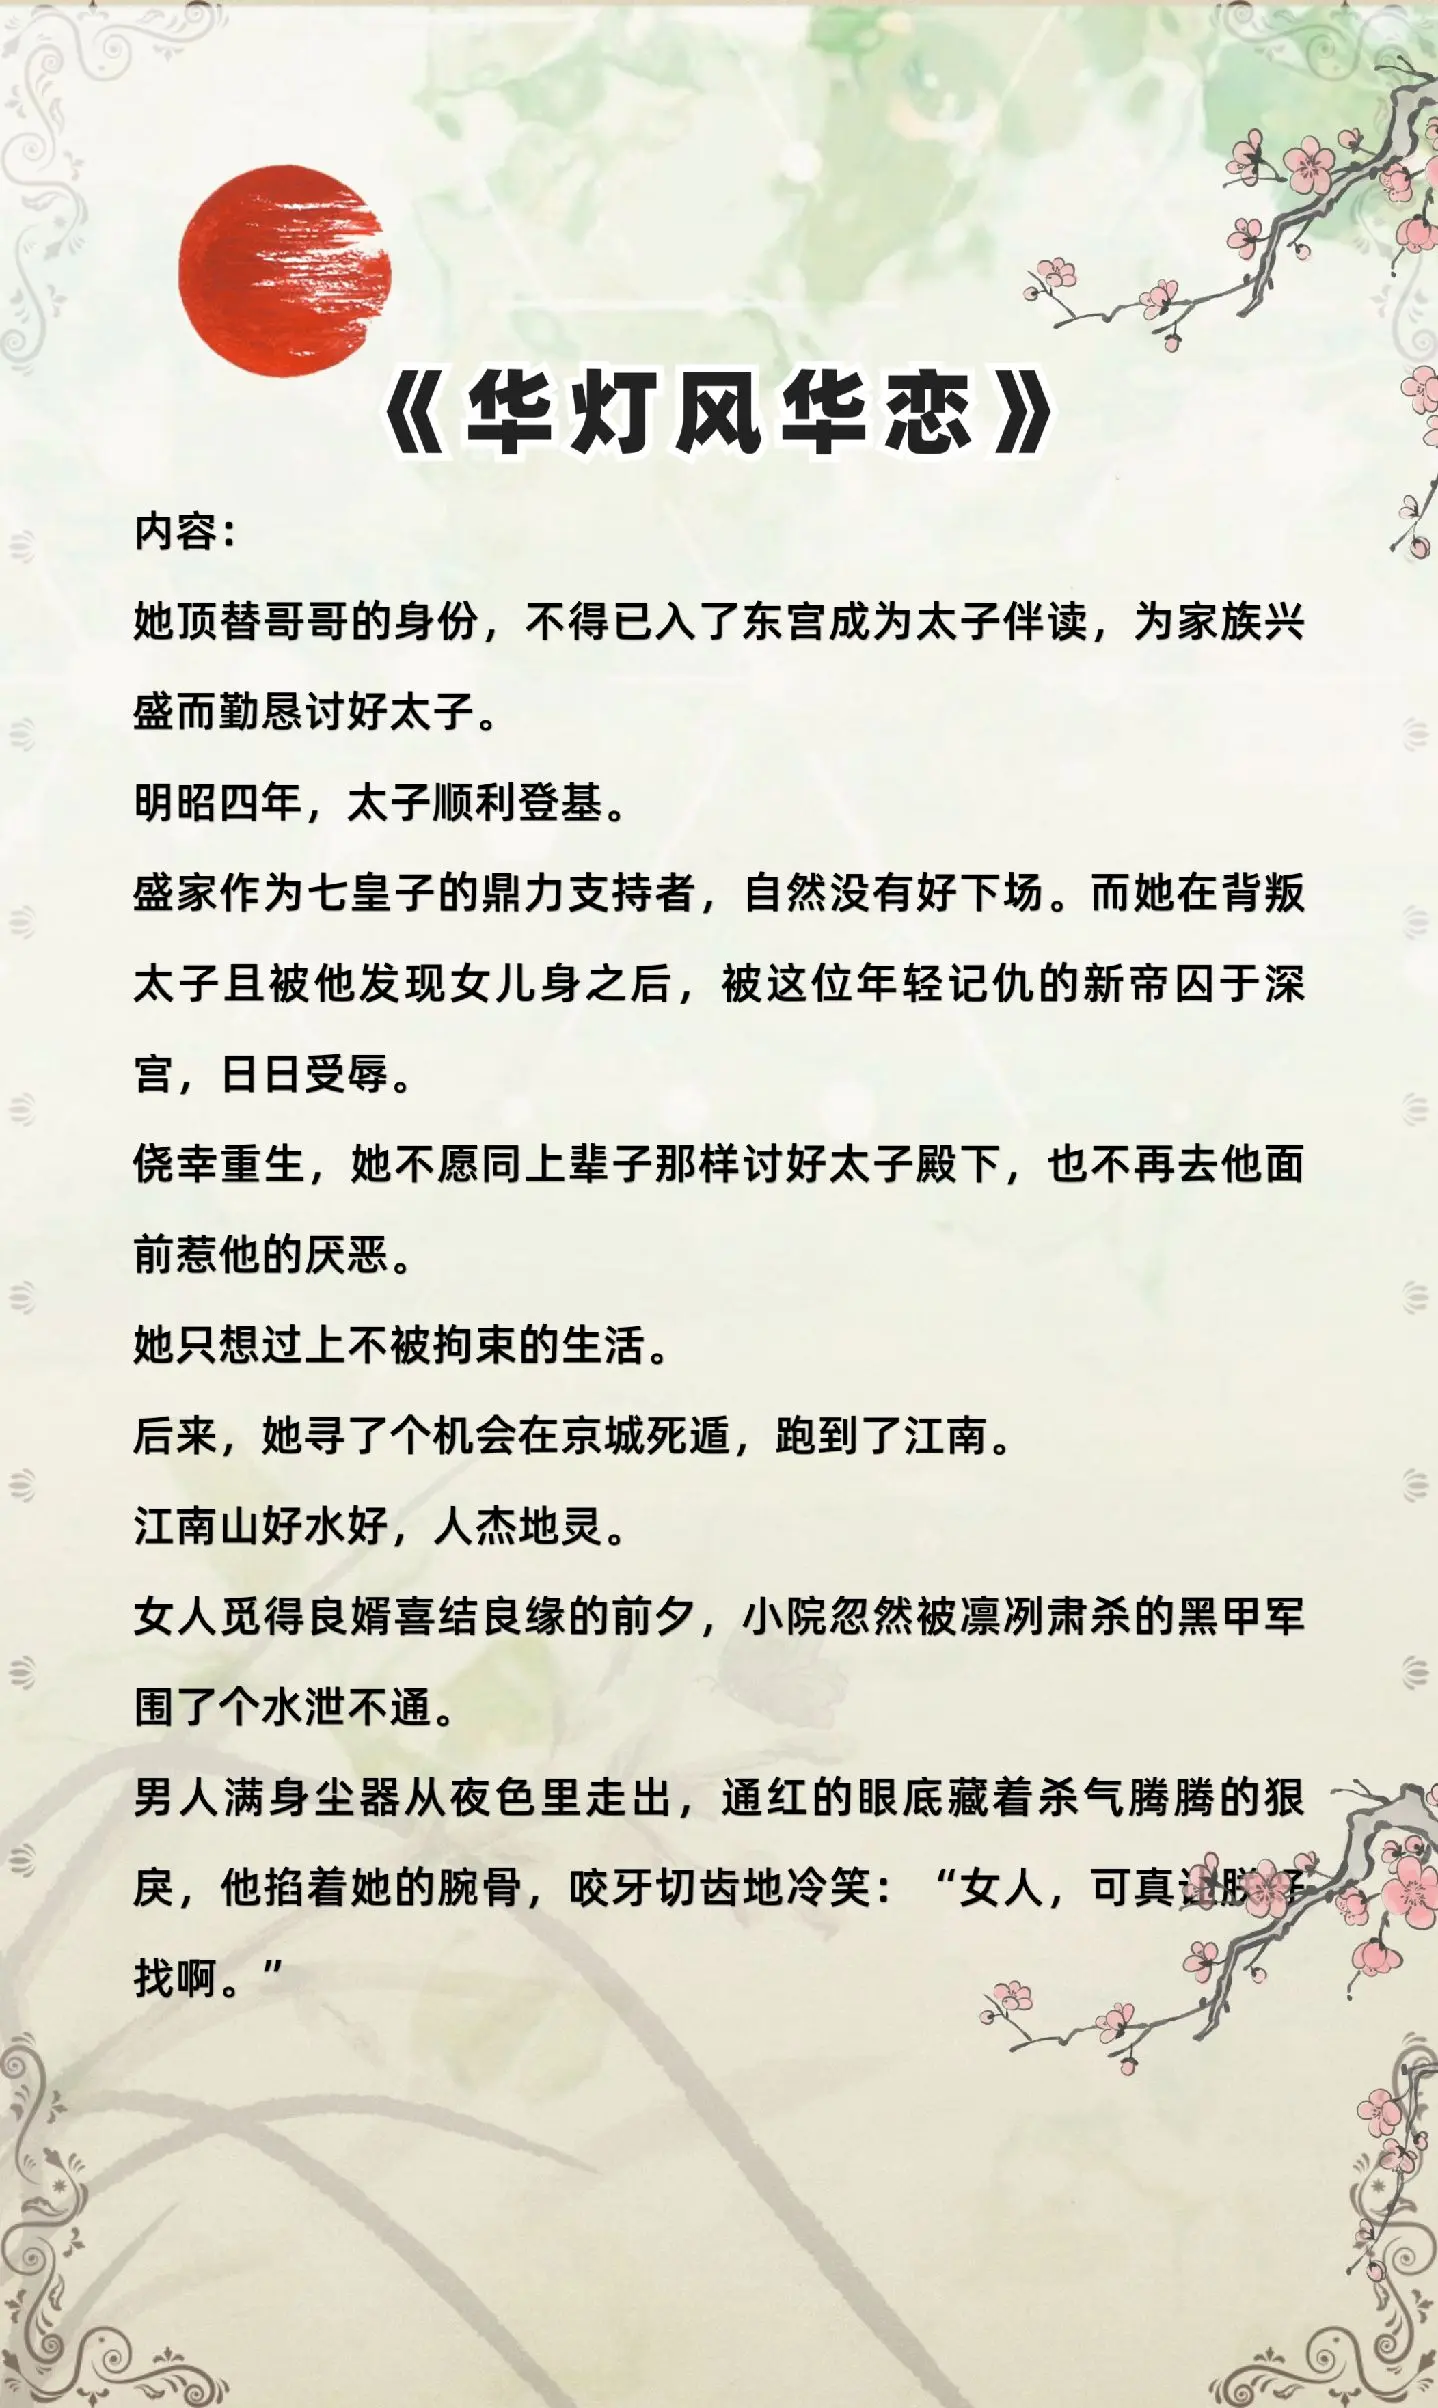 《华灯风华恋》
内容：
她顶替哥哥的身份，不得已入了东宫成为太子伴读，为家族兴
盛而勤恳讨好太子。
明昭四年，太子顺利登基。
盛家作为七皇子的鼎力支持者，自然没有好下场。而她在背叛
太子且被他发现女儿身之后，被这位年轻记仇的新帝囚于深
宫，日日受辱。
侥幸重生，她不愿同上辈子那样讨好太子殿下，也不再去他面
前惹他的厌恶。
她只想过上不被拘束的生活。
后来，她寻了个机会在京城死遁，跑到了江南。
江南山好水好，人杰地灵。
女人觅得良婿喜结良缘的前夕，小院忽然被凛冽肃杀的黑甲军
围了个水泄不通。
男人满身尘器从夜色里走出，通红的眼底藏着杀气腾腾的狠
戾，他掐着她的腕骨，咬牙切齿地冷笑：“女人，可真让朕好
找啊。”